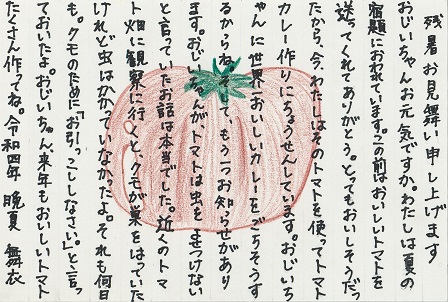 残暑お見舞い申し上げます
おじいちゃんお元気ですか。わたしは夏の
宿題におわれています。この前はおいしいトマトを
送ってくれてありがとう。とってもおいしそうだっ
たから、今、わたしはそのトマトを使ってトマト
カレー作りにちょうせんしています。おじいち
ゃんに世界一おいしいカレーをごちそうす
るからね。そして、もう一つお知らせがあり
ます。おじいちゃんがトマトは虫をよせつけない
と言っていたお話は本当でした。近くのトマ
ト畑に観察に行くと、クモが巣をはっていた
けれど虫はかかっていなかったよ。それも何日
も。クモのために「お引っこししなさい。」と言っ
ておいたよ。おじいちゃん、来年もおいしいトマト
たくさん作ってね。令和四年 晩夏 舞衣